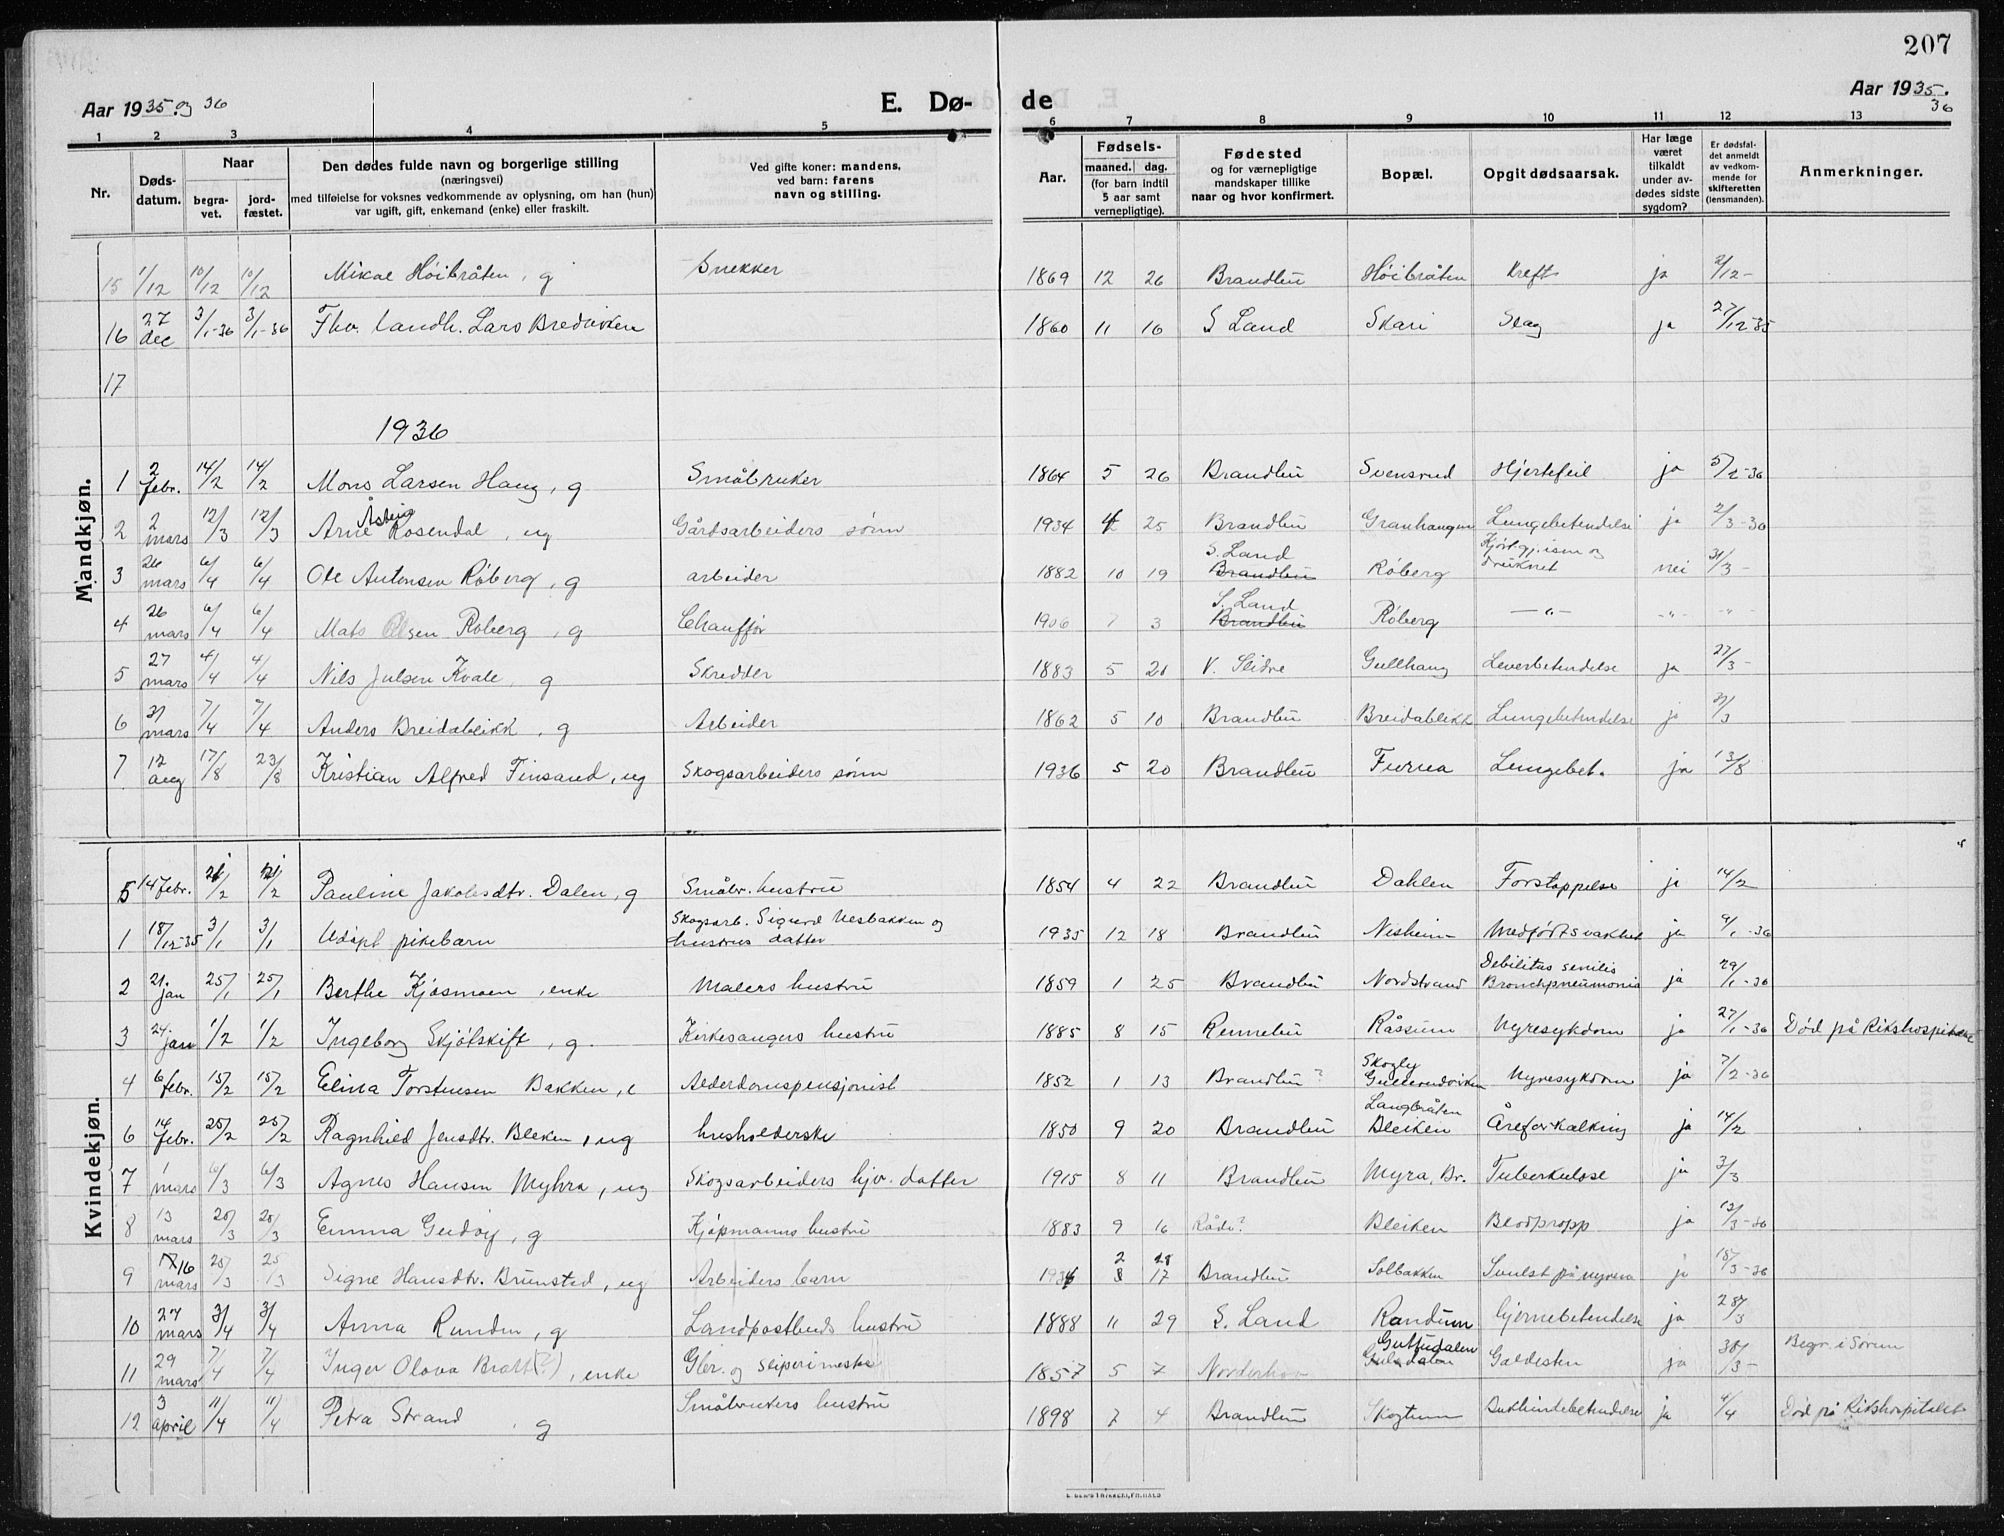 207
Aar 1935 og 36 E. Dø- de Aar 1935. 36
1 2 3 4 5 6 7 8 9 10 11 12 13
Nr. Døds-datum. Naar begra-vet. jord-fæstet. Den dødes fulde navn og borgerlige stilling (næringsvei) med tilføielse for voksnes vedkommende av oplysning, om han (hun) var ugift, gift, enkemand (enke) eller fraskilt. Ved gifte koner: mandens, ved barn: farens navn og stilling. Aar. Fødsels- maaned. dag. (for barn indtil 5 aar samt vernepligtige). Fødested og for værnepligtige mandskaper tillike naar og hvor konfirmert. Bopæl. Opgit dødsaarsak. Har læge været tilkaldt under av-dødes sidste sygdom? Er dødsfal-det anmeldt av vedkom-mende for skifteretten (lensmanden). Anmerkninger.
Mandkjøn.
15 1/12 10/12 10/12 Mikal Høibråten, g Snekker 1869 12 26 Brandbu Høibråten Kreft ja 2/12-
16 27 dec 3/1-36 3/1-36 Fhv. landh. Lars Bredviken 1860 11 16 S Land Skari Slag ja 27/12-35
17
1936
1 2 febr. 14/2 14/2 Mons Larsen Haug, g Småbruker 1864 5 26 Brandbu Svensrud Hjertefeil ja 5/2-36
2 2 mars 12/3 12/3 Arne Åsbeig Rosendal, ug Gårdsarbeiders sønn 1934 4 25 Brandbu Granhaugen Lungebetendelse ja 2/3-36
3 26 mars 6/4 6/4 Ole Antonsen Røberg, g arbeider 1882 10 19 S. Land Brandbu Røberg Kjørt gj. isen og druknet nei 31/3-
4 26 mars 6/4 6/4 Mats Olsen Røberg, g Chauffør 1906 7 3 S. Land Brandbu Røberg -"- -"- -"-
5 27 mars 4/4 4/4 Nils Julsen Kvale, g Skredder 1883 5 20 V. Slidre Gullhaug Leverbetendelse ja 27/3-
6 31 mars 7/4 7/4 Anders Breidablikk, g Arbeider 1862 5 10 Brandbu Breidablikk Lungebetendelse ja 31/3
7 12 aug 17/8 23/8 Kristian Alfred Finsand, ug Skogsarbeiders sønn 1936 5 20 Brandbu Furua Lungebet. ja 13/8
Kvindekjøn.
5 14 febr. 21/2 21/2 Pauline Jakobsdtr. Dalen, g Småbr. hustru 1854 4 22 Brandbu Dahlen Forstoppelse ja 14/2
1 18/12-35 3/1 3/1 Udøpt pikebarn Skogsarb. Sigurd Nesbakken og hustrus datter 1935 12 18 Brandbu Nesheim- Medfødt svakhet ja 9/1-36
2 21. jan 25/1 25/1 Berthe Kjosmoen, enke Malers hustru 1859 1 25 Brandbu Nordstrand Debilitas senilis Bronchpneumonia ja 29/1-36
3 24. jan 1/2 1/2 Ingeborg Skjølskift, g. Kirkesangers hustru 1885 8 15 Rennebu Råssum Nyresykdom ja 27/1-36 Død på Rikshospitalet
4 6/ febr. 15/2 15/2 Elina Torstensen Bakken, e Alderdomspensjonist 1852 1 13 Brandbu? Skogly Gullerudviken Nyresykdom ja 7/2-36
6 14 febr. 25/2 25/2 Ragnhild Jensdtr. Bleken, ug husholderske 1850 9 20 Brandbu Langbråten Bleiken Åreforkalking ja 14/2
7 1 mars 6/3 6/3 Agnes Hansen Myhra, ug Skogsarbeiders hjv. datter 1915 8 11 Brandbu Myra, Br. Tuberkulose ja 3/3
8 13 mars 20/3 20/3 Emma Gudvig, g Kjøpmanns hustru 1883 9 16 Råde? Bleiken Blodpropp ja 13/3-36
9 16 mars 25/3 25/3 Signe Hansdtr. Brunstad, ug Arbeiders barn 1934 2 28 8 17 Brandbu Solbakken Svulst på nyrene ja 18/3-36
10 27 mars 3/4 3/4 Anna Runden, g Landpostbuds hustru 1888 11 29 S. Land Randum hjernebetendelse ja 28/3
11 29 mars 7/4 7/4 Inger Olava Bratt(?), enke Gbr. og sliperimester 1857 5 7 Norderhov Gulsdalen Galdesten ja 30/3- Begr. i Sørum
12 3 april 11/4 11/4 Petra Strand, g Småbrukers hustru 1898 7 4 Brandbu Skogtum Bukhinnebetendelse ja 4/4 Død på Rikshospitalet